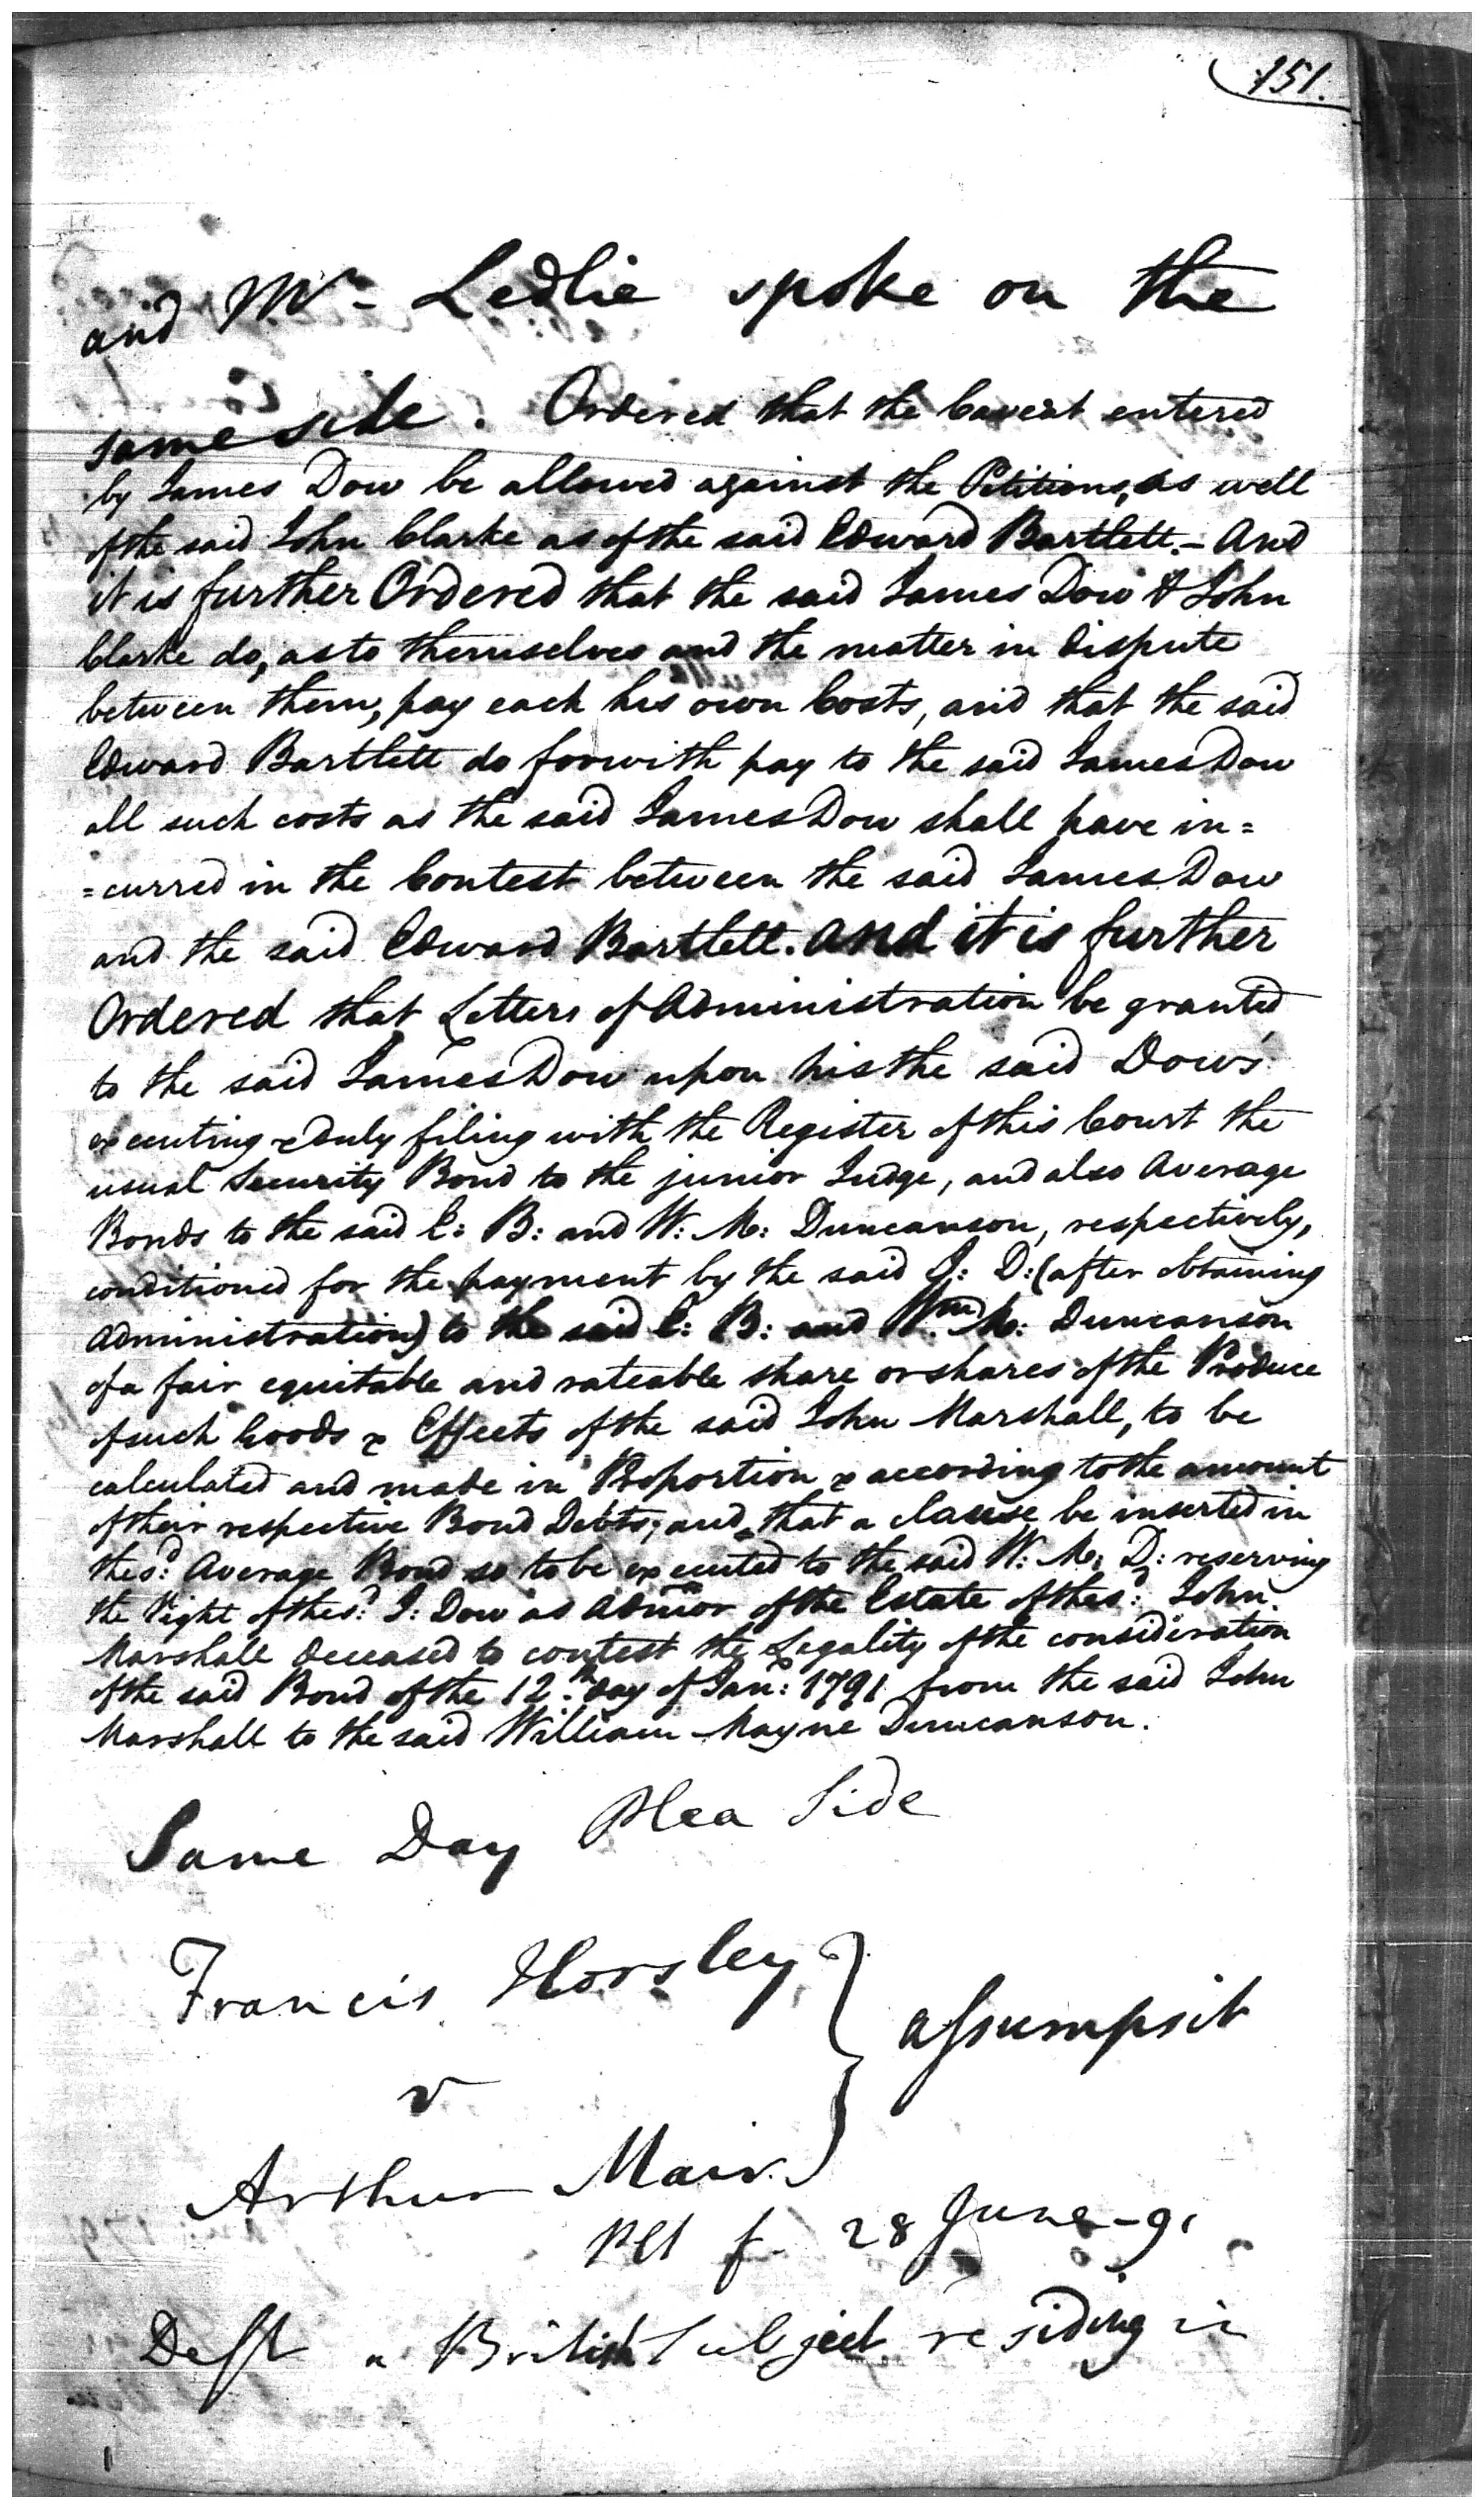 151.
and Mr Ledlie spoke on the
same side. Ordered that the Caveat entered
by James Dow be allowed against the Petitions, as well
of the said John Clarke as of the said Edward Bartlett. – And
it is further Ordered that the said James Dow & John
Clarke do, as to themselves and the matter in dispute
between them, pay each his own Costs, and that the said
Edward Bartlett do forwith pay to the said James Dow
all such costs as the said James Dow shall have in=
=curred in the Contest between the said James Dow
and the said Edward Bartlett. And it is further
Ordered that Letters of Administration be granted
to the said James Dow upon his the said Dow's
executing & duly filing with the Register of this Court the
usual Security Bond to the junior Judge, and also Average
Bonds to the said E: B: and W: M: Duncanson, respectively,
conditioned for the payment by the said J: D: (after obtaining
Administration) to the said E: B: and Wm. M: Duncanson
of a fair equitable and rateable share or shares of the Produce
of such Goods & Effects of the said John Marshall, to be
calculated and made in Proportion & according to the amount
of their respective Bond Debts; and that a clause be inserted in
the sd: Average Bond so to be executed to the said W: M: D: reserving
the Right of the sd: J: Dow as Admor of the Estate of the sd: John
Marshall deceased to contest the Legality of the consideration
of the said Bond of the 12th day of Jan: 1791 from the said John
Marshall to the said William Mayne Duncanson.
Same Day Plea Side
Francis Horsley } assumpsit
v
Arthur Mair
Plt f. 28 June – 91
Deft a British Subject residing in